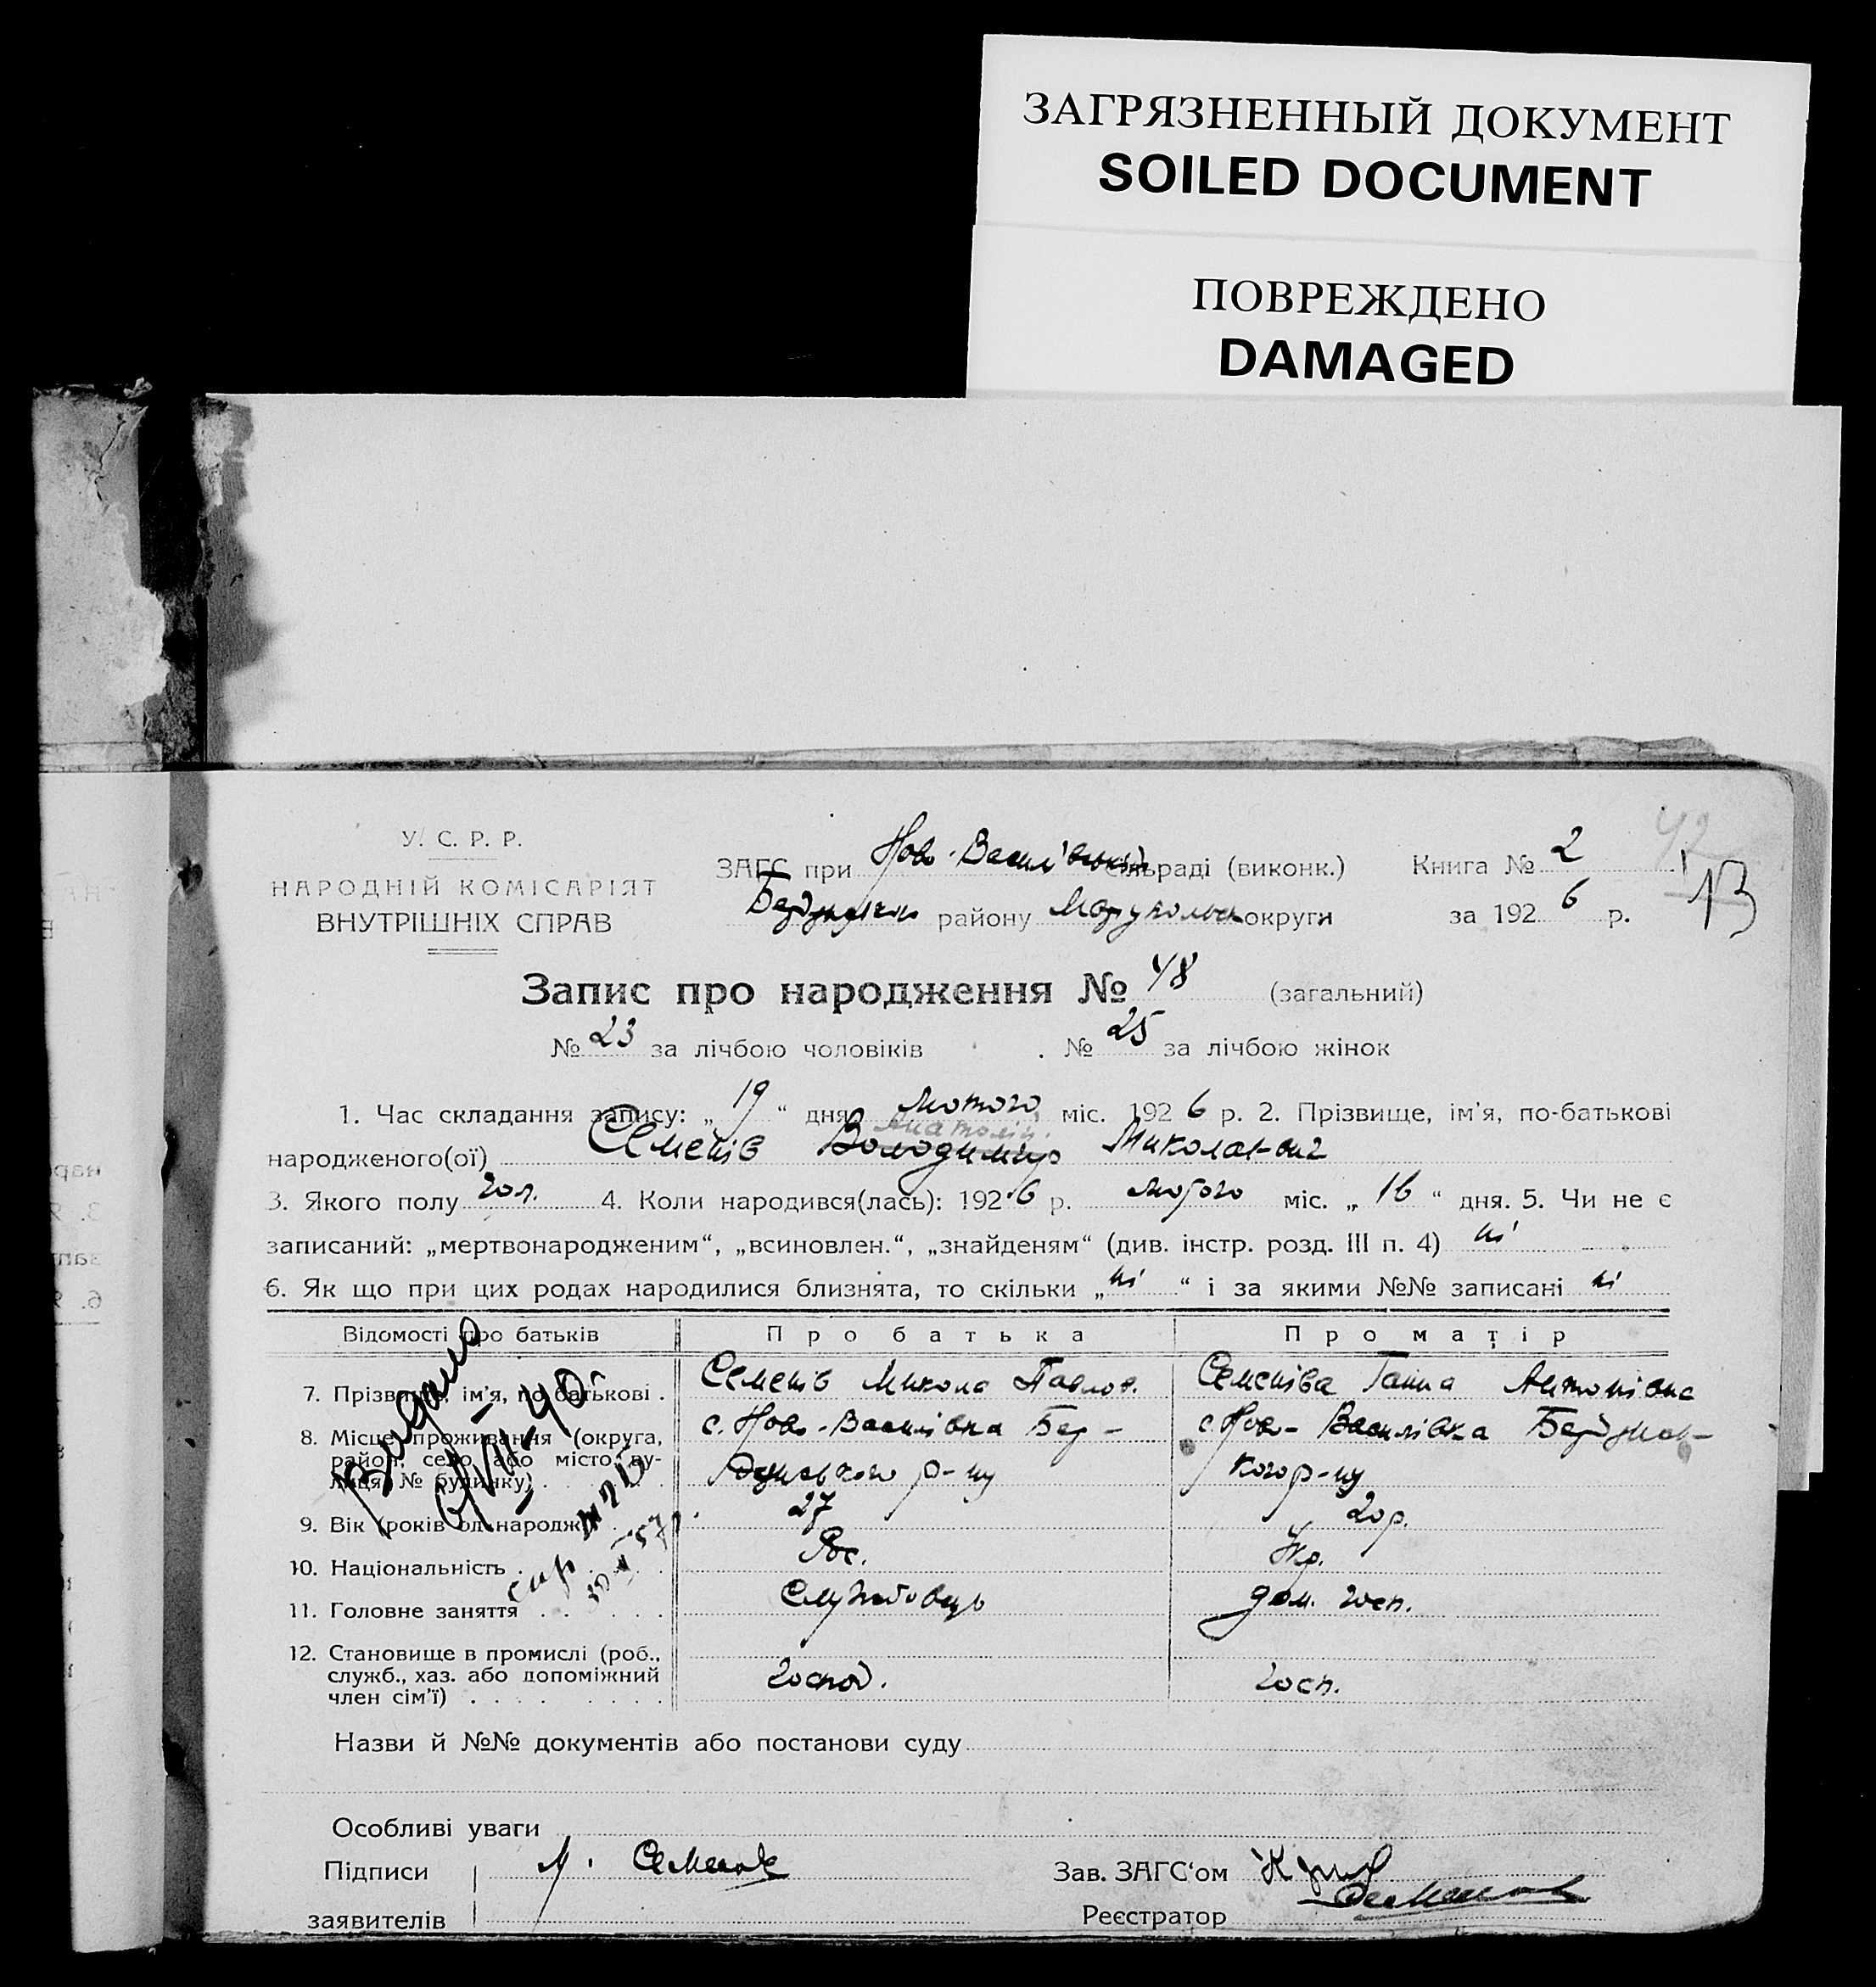 ЗАГРЯЗНЕННЫЙ ДОКУМЕНТ
SOILED DOCUMENT
ПОВРЕЖДЕНО
DAMAGED
42
13
У. С. Р. Р.
НАРОДНІЙ КОМІСАРІЯТ
ВНУТРІШНІХ СПРАВ
ЗАГС при Ново-Василівській сільраді (виконк.) Книга № 2
Бердянськ району Марупольск округи за 1926 р.
Запис про народження № 48 (загальний)
№ 23 за лічбою чоловіків . № 25 за лічбою жінок
1. Час складання запису: „19“ дня лютого міс. 1926 р. 2. Прізвище, ім'я, по-батькові
Анатолій
народженого(ої) Семенів Володимир Миколаєвич
3. Якого полу чол. 4. Коли народився(лась): 1926 р. лютого міс. „16“ дня. 5. Чи не є
записаний: „мертвонародженим“, „всиновлен.“, „знайденям“ (див. інстр. розд. III п. 4) ні
6. Як що при цих родах народилися близнята, то скільки „ні“ і за якими №№ записані ні
Відомості про батьків Про батька Про матір
7. Прізвище, ім'я, по батькові . Семенів Микола Павлов. Семеніва Ганна Антонівна
8. Місце проживання (округа, район, село, або місто, вулиця, № будинку) . с. Ново-Василівка Бердянського р-ну с. Ново-Василівка Бердянського р-ну
9. Вік (років од народж.) . 27 20 р.
10. Національність . Рос. Укр.
11. Головне заняття . Службовець дом. госп.
12. Становище в промислі (роб., служб., хаз. або допоміжний член сім'ї) . господ. госп.
Видано
Назви й №№ документів або постанови суду
Особливі уваги
Підписи М. Семенов Зав. ЗАГС'ом
заявителів Реєстратор